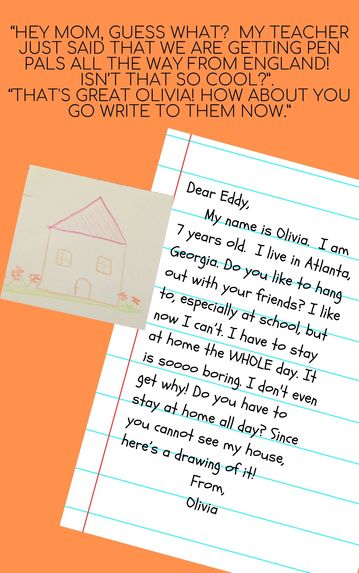 “HEY MOM, GUESS WHAT?  MY TEACHER
JUST SAID THAT WE ARE GETTING PEN
PALS ALL THE WAY FROM ENGLAND!
ISN’T THAT SO COOL?”.
“THAT’S GREAT OLIVIA! HOW ABOUT YOU
GO WRITE TO THEM NOW.”
Dear Eddy,
My name is Olivia.  I am
7 years old.  I live in Atlanta,
Georgia. Do you like to hang
out with your friends? I like
to, especially at school, but
now I can’t. I have to stay
at home the WHOLE day. It
is soooo boring. I don’t even
get why! Do you have to
stay at home all day? Since
you cannot see my house,
here’s a drawing of it!
From,
Olivia